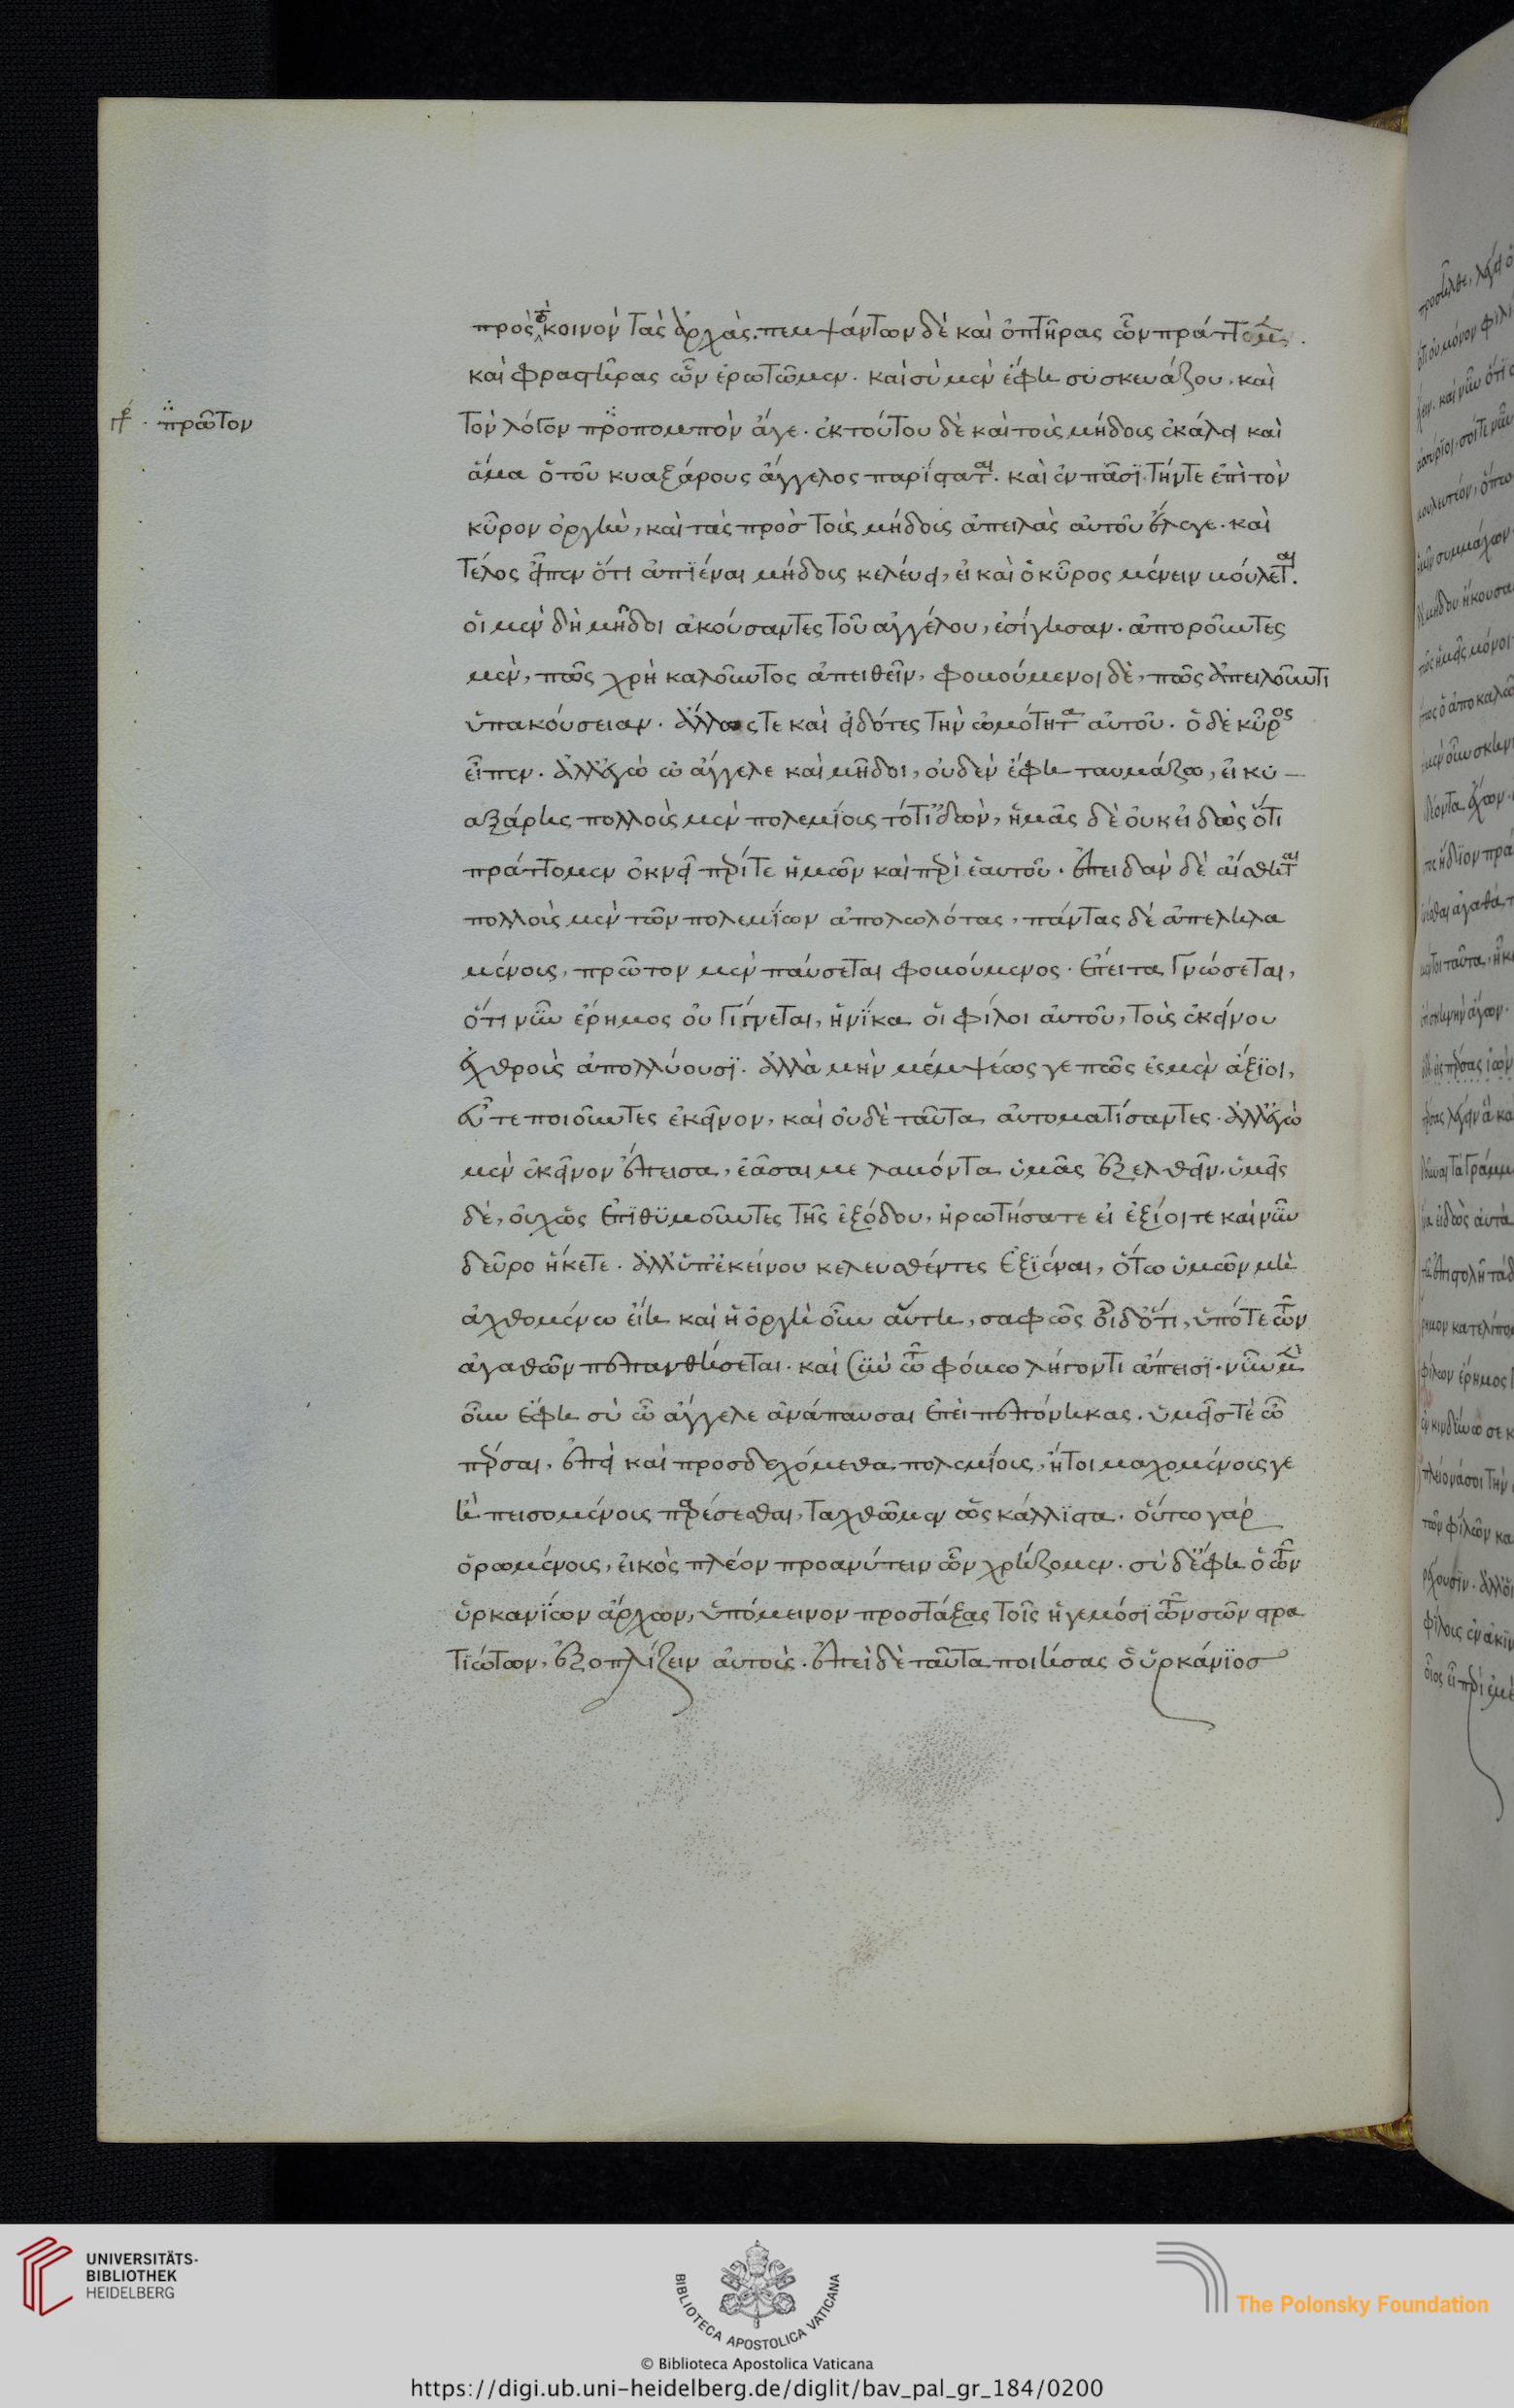 πρὸς τὸ κοινὸν τὰς ἀρχὰς. πεμψάντων δὲ καὶ ὀπτῆρας ὧν πράττομεν.
καὶ φραστῆρας ὧν ἐρωτῶμεν. καὶ σὺ μὲν ἔφη συσκευάζου. καὶ
γρ. πρῶτον
τὸν λόγον προπομπὸν ἄγε. ἐκ τούτου δὲ καὶ τοὺς μήδους ἐκάλει καὶ
ἅμα ὁ τοῦ κυαξάρους ἄγγελος παρίσταται. καὶ ἐν πᾶσι τήν τε ἐπὶ τὸν
κῦρον ὀργὴν, καὶ τὰς πρὸς τοὺς μήδους ἀπειλὰς αὐτοῦ ἔλεγε. καὶ
τέλος εἶπεν ὅτι ἀπϊέναι μήδους κελεύει, εἰ καὶ ὁ κῦρος μένειν βούλεται.
οἱ μὲν δὴ μῆδοι ἀκούσαντες τοῦ ἀγγέλου, ἐσίγησαν. ἀποροῦντες
μὲν, πῶς χρὴ καλοῦντος ἀπειθεῖν, φοβούμενοι δὲ, πῶς ἀπειλοῦντι
ὑπακούσειαν. ἄλλως τε καὶ εἰδότες τὴν ὠμότητα αὐτοῦ. ὁ δὲ κῦρος
εἶπεν. ἀλλ' ἐγὼ ὦ ἄγγελε καὶ μῆδοι, οὐδὲν ἔφη θαυμάζω, εἰ κυ–
αξάρης πολλοὺς μὲν πολεμίους τότ' ἰδὼν, ἡμᾶς δὲ οὐκ εἰδὼς ὅτι
πράττομεν ὀκνεῖ περί τε ἡμῶν καὶ περὶ ἑαυτοῦ. ἐπειδὰν δὲ αἴσθηται
πολλοὺς μὲν τῶν πολεμίων ἀπολωλότας, πάντας δὲ ἀπεληλα
μένους, πρῶτον μὲν παύσεται φοβούμενος. ἔπειτα γνώσεται,
ὅτι νῦν ἔρημος οὐ γίγνεται, ἡνίκα οἱ φίλοι αὐτοῦ, τοὺς ἐκείνου
ἐχθροὺς ἀπολλύουσϊ. ἀλλὰ μὴν μέμψεώς γε πῶς ἐσμὲν ἄξϊοι,
εὖ τε ποιοῦντες ἐκεῖνον, καὶ οὐδὲ ταῦτα αὐτοματίσαντες. ἀλλ' ἐγὼ
μὲν ἐκεῖνον ἔπεισα, ἐᾶσαι με λαβόντα ὑμᾶς ἐξελθεῖν. ὑμεῖς
δὲ, οὐχ ὡς ἐπϊθϋμοῦντες τῆς ἐξόδου, ἠρωτήσατε εἰ ἐξίοιτε καὶ νῦν
δεῦρο ἥκετε. ἀλλ' ὑπ' ἐκείνου κελευσθέντες ἐξϊέναι, ὅτω ὑμῶν μὴ
ἀχθομένω εἴη καὶ ἡ ὀργὴ οὖν αὕτη, σαφῶς οἶδ' ὅτι, ὑπό τε τῶν
ἀγαθῶν πεπανθήσεται. καὶ σὺν τῶ φόβω λήγοντι ἄπεισϊ. νῦν μὲν
οὖν ἔφη σὺ ὦ ἄγγελε ἀνάπαυσαι ἐπεὶ πεπόνηκας. ὑμεῖς τὲ ὦ
πέρσαι, ἐπεὶ καὶ προσδεχόμεθα πολεμίους, ἤτοι μαχομένους γε
ἢ πεισομένους παρέσεσθαι, ταχθῶμεν ὡς κάλλϊστα. οὕτω γὰρ
ὁρωμένους, εἰκὸς πλέον προανύτειν ὧν χρήζομεν. σὺ δ' ἔφη ὁ τῶν
ὑρκανίων ἄρχων, ὑπόμεινον προστάξας τοῖς ἡγεμόσϊ τῶν σῶν στρα
τϊώτων, ἐξοπλίζειν αὐτούς. ἐπεὶ δὲ ταῦτα ποιήσας ὁ ὑρκάνϊος
UNIVERSITÄTS-
BIBLIOTHEK
HEIDELBERG
BIBLIOTECA APOSTOLICA VATICANA
The Polonsky Foundation
© Biblioteca Apostolica Vaticana
https://digi.ub.uni-heidelberg.de/diglit/bav_pal_gr_184/0200